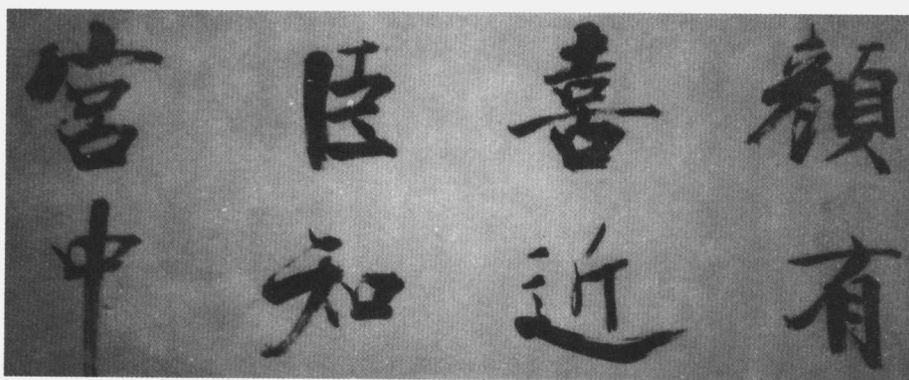 顏有
喜近
臣知
宮中